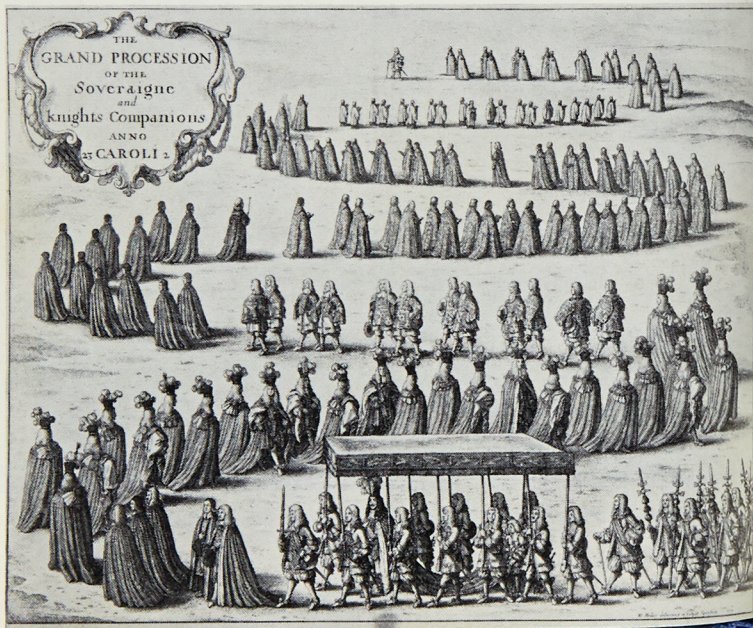 THE
GRAND PROCESSION
OF THE
Soveraigne
and
knights Companions
ANNO
23 CAROLI 2